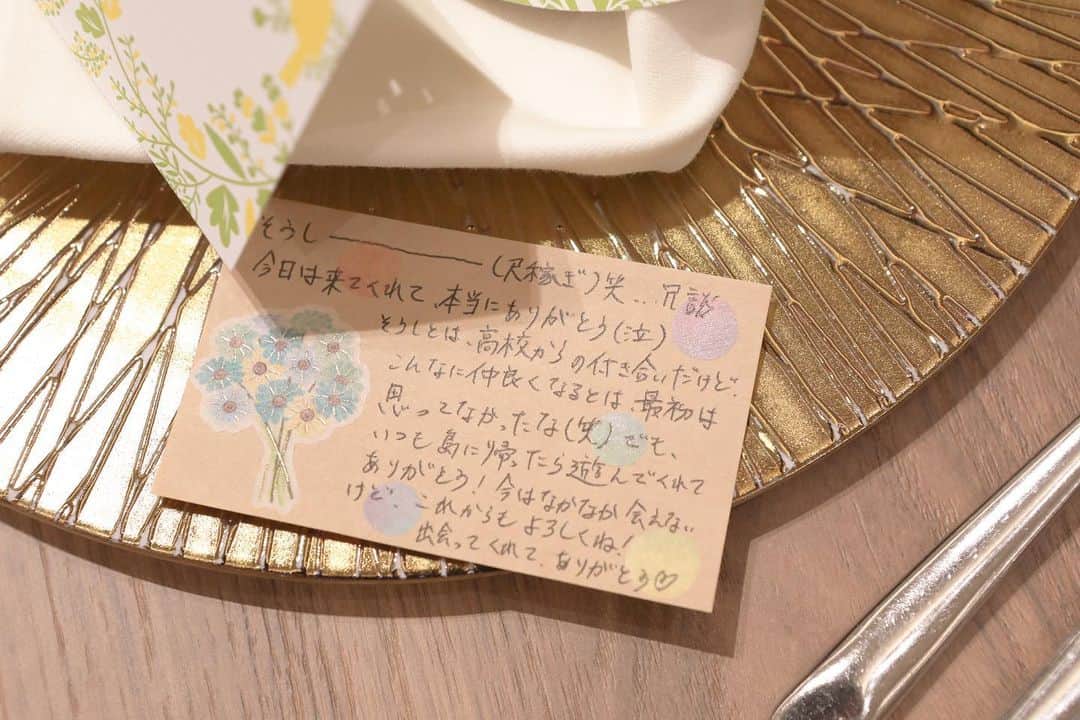 そうし――――(尺稼ぎ)笑…冗談
今日は来てくれて、本当にありがとう(泣)
そうしとは、高校からの付き合いだけど、
こんなに仲良くなるとは、最初は
思ってなかったな(笑)でも、
いつも島に帰ったら遊んでくれて
ありがとう!今はなかなか会えない
けど、これからもよろしくね!
出会ってくれて、ありがとう♡